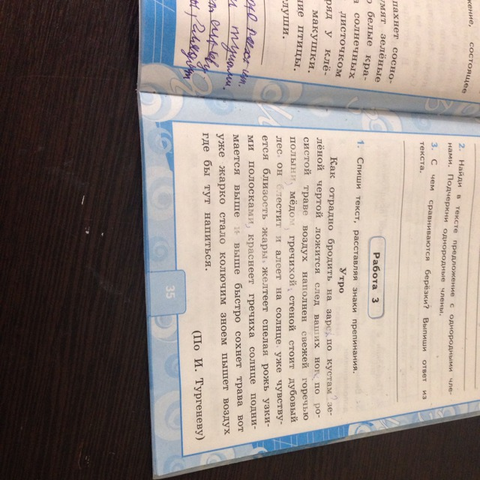 жение, состоящее
пахнет сосно-
умят зелёные
о белые кра-
а солнечных
листочком
ряд у клё-
макушки.
ние птицы.
души.
2. Найди в тексте предложение с однородными чле-
нами. Подчеркни однородные члены.
3. С чем сравниваются берёзки? Выпиши ответ из
текста.
Работа 3
1. Спиши текст, расставляя знаки препинания.
Утро
Как отрадно бродить на заре по кустам зе-
лёной чертой ложится след ваших ног по ро-
систой траве воздух наполнен свежей горечью
полыни, мёдом гречихой, стеной стоит дубовый
лес, он блестит и алеет на солнце уже чувству-
ется близость жары. желтеет спелая рожь узки-
ми полосками, краснеет гречиха солнце подни-
мается выше и выше быстро сохнет трава вот
уже жарко стало колючим зноем пышет воздух
где бы тут напиться.
(По И. Тургеневу)
35